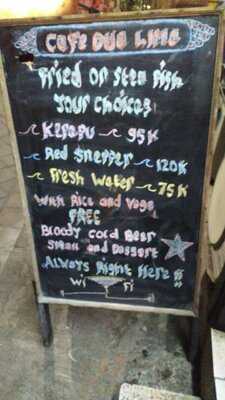 Cafe Dua Lima
Fried or Stem Fish
Your Choices!
Kerapu ~ 95K
Red Snepper ~ 120K
Fresh Water ~ 75K
With Rice and Vege
FREE
Bloody Cold Beer
and Dessert
Always Right Here!!
Wi Fi